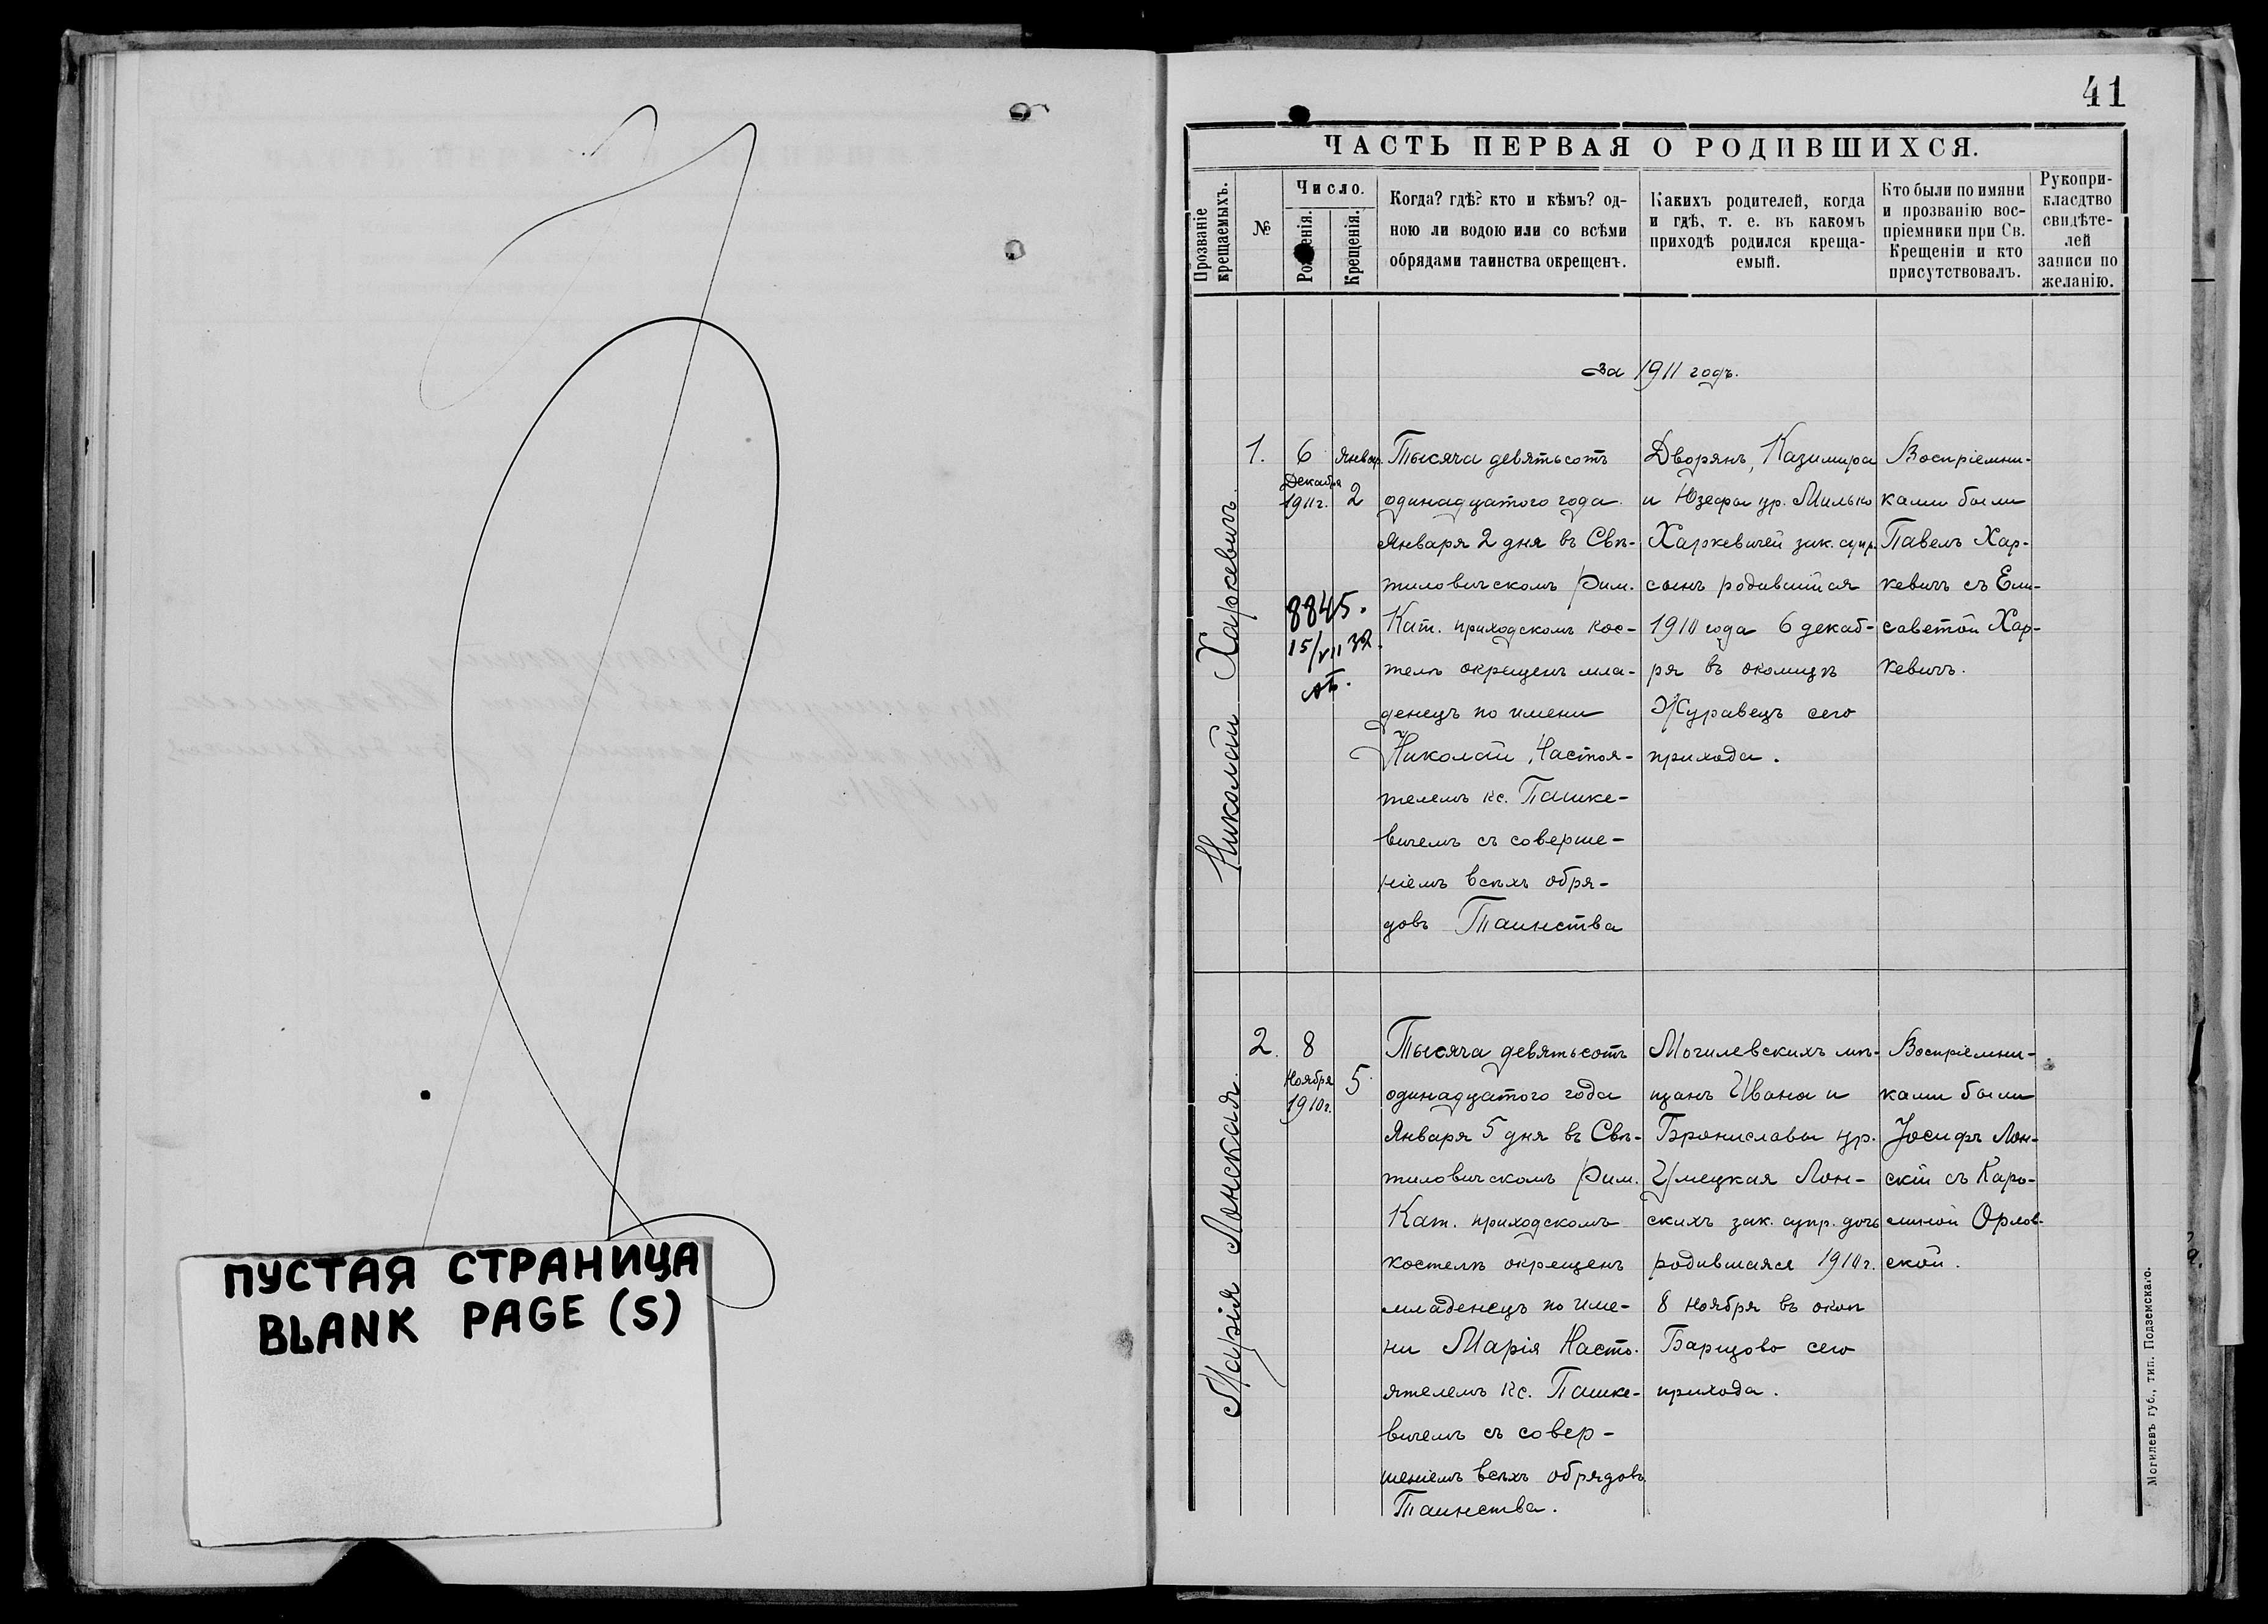 ПУСТАЯ СТРАНИЦА
BLANK PAGE (S)
41
ЧАСТЬ ПЕРВАЯ О РОДИВШИХСЯ.
Прозваніе
крещаемыхъ.
№
Число.
Рожденія.
Крещенія.
Когда? гдѣ? кто и кѣмъ? од-
ною ли водою или со всѣми
обрядами таинства окрещенъ.
Какихъ родителей, когда
и гдѣ, т. е. въ какомъ
приходѣ родился креща-
емый.
Кто были по имяни
и прозванію вос-
пріемники при Св.
Крещеніи и кто
присутствовалъ.
Рукопри-
кладство
свидѣте-
лей
записи по
желанію.
за 1911 годъ.
Николай Харкевичъ.
1.
6
Декабря
1911г.
8845.
15/VII 32.
Январ.
2
Тысяча девятьсотъ
одинадцатого года
Января 2 дня въ Свѣ-
тиловичскомъ Рим.
Кат. приходскомъ кос-
телѣ окрещенъ мла-
денецъ по имени
Николай, Настоя-
телемъ кс. Пашке-
вичемъ съ соверше-
ніемъ всѣхъ обря-
довъ Таинства
Дворянъ, Казимира
и Юзефы ур. Милько
Харкевичей зак. супр.
сынъ родившійся
1910 года 6 декаб-
ря въ околицѣ
Журавецъ сего
прихода.
Воспріемни-
ками были
Павелъ Хар-
кевичъ съ Ели-
саветой Хар-
кевичъ.
Марія Лонская.
2.
8
Ноября
1910г.
5
Тысяча девятьсотъ
одинадцатого года
Января 5 дня въ Свѣ-
тиловичскомъ Рим.
Кат. приходскомъ
костелѣ окрещенъ
младенецъ по име-
ни Марія Насто-
ятелемъ кс. Пашке-
вичемъ съ совер-
шеніемъ всѣхъ обрядовъ
Таинства.
Могилевскихъ мѣ-
щанъ Ивана и
Брониславы ур.
Умецкая Лон-
скихъ зак. супр. дочь
родившаяся 1910г.
8 ноября въ окол
Барцово сего
прихода.
Воспріемни-
ками были
Іосифъ Лон-
скій съ Каро-
линой Орлов-
ской.
Могилевъ губ., тип. Подземскаго.